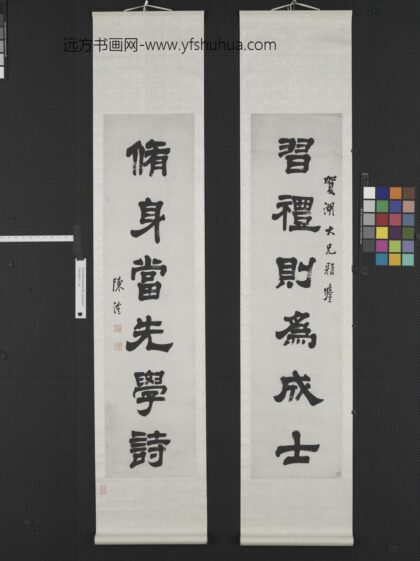 远方书画网-www.yfshuhua.com
習禮則為成士
賀湖大兄雅鑒
脩身當先學詩
陳澧